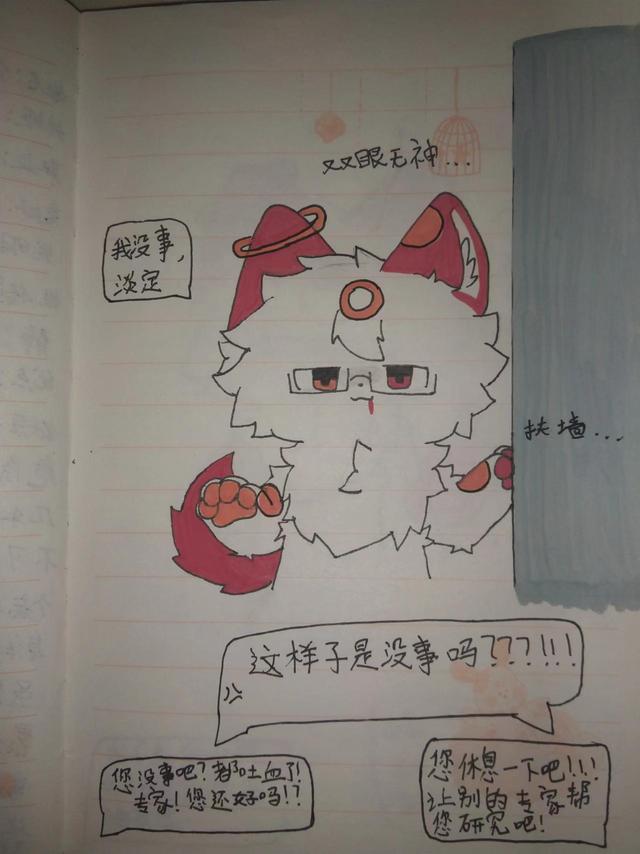 双眼无神...
我没事,
淡定
扶墙...
这样子是没事吗???!!!
您没事吧?都吐血了!
专家!您还好吗!?
您休息一下吧!!!
让别的专家帮
您研究吧!